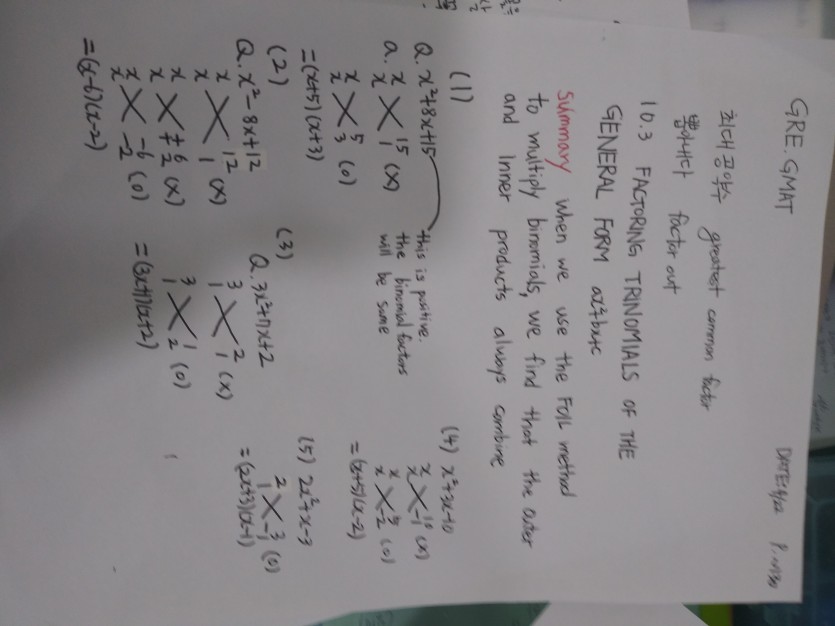 GRE. GMAT
최대공약수 greatest common factor
뽑아내다 factor out
10.3 FACTORING TRINOMIALS OF THE
GENERAL FORM ax²+bx+c
summary when we use the FOIL method
to multiply binomials, we find that the outer
and inner products always combine
(1)
Q. x²+8x+15
this is positive.
the binomial factors
will be same
a. x 15
x 1 (x)
x 5
x 3 (o)
=(x+5)(x+3)
(2)
Q. x²-8x+12
x 12
x 1 (x)
x +6
x +2 (x)
x -6
x -2 (o)
=(x-6)(x-2)
(3)
Q. 3x²+7x+2
3 2
1 1 (x)
3 1
1 2 (o)
=(3x+1)(x+2)
(4) x²+3x-10
x 10
x -1 (x)
x 5
x -2 (o)
=(x+5)(x-2)
(5) 2x²+x-3
2 3
1 -1 (o)
=(2x+3)(x-1)